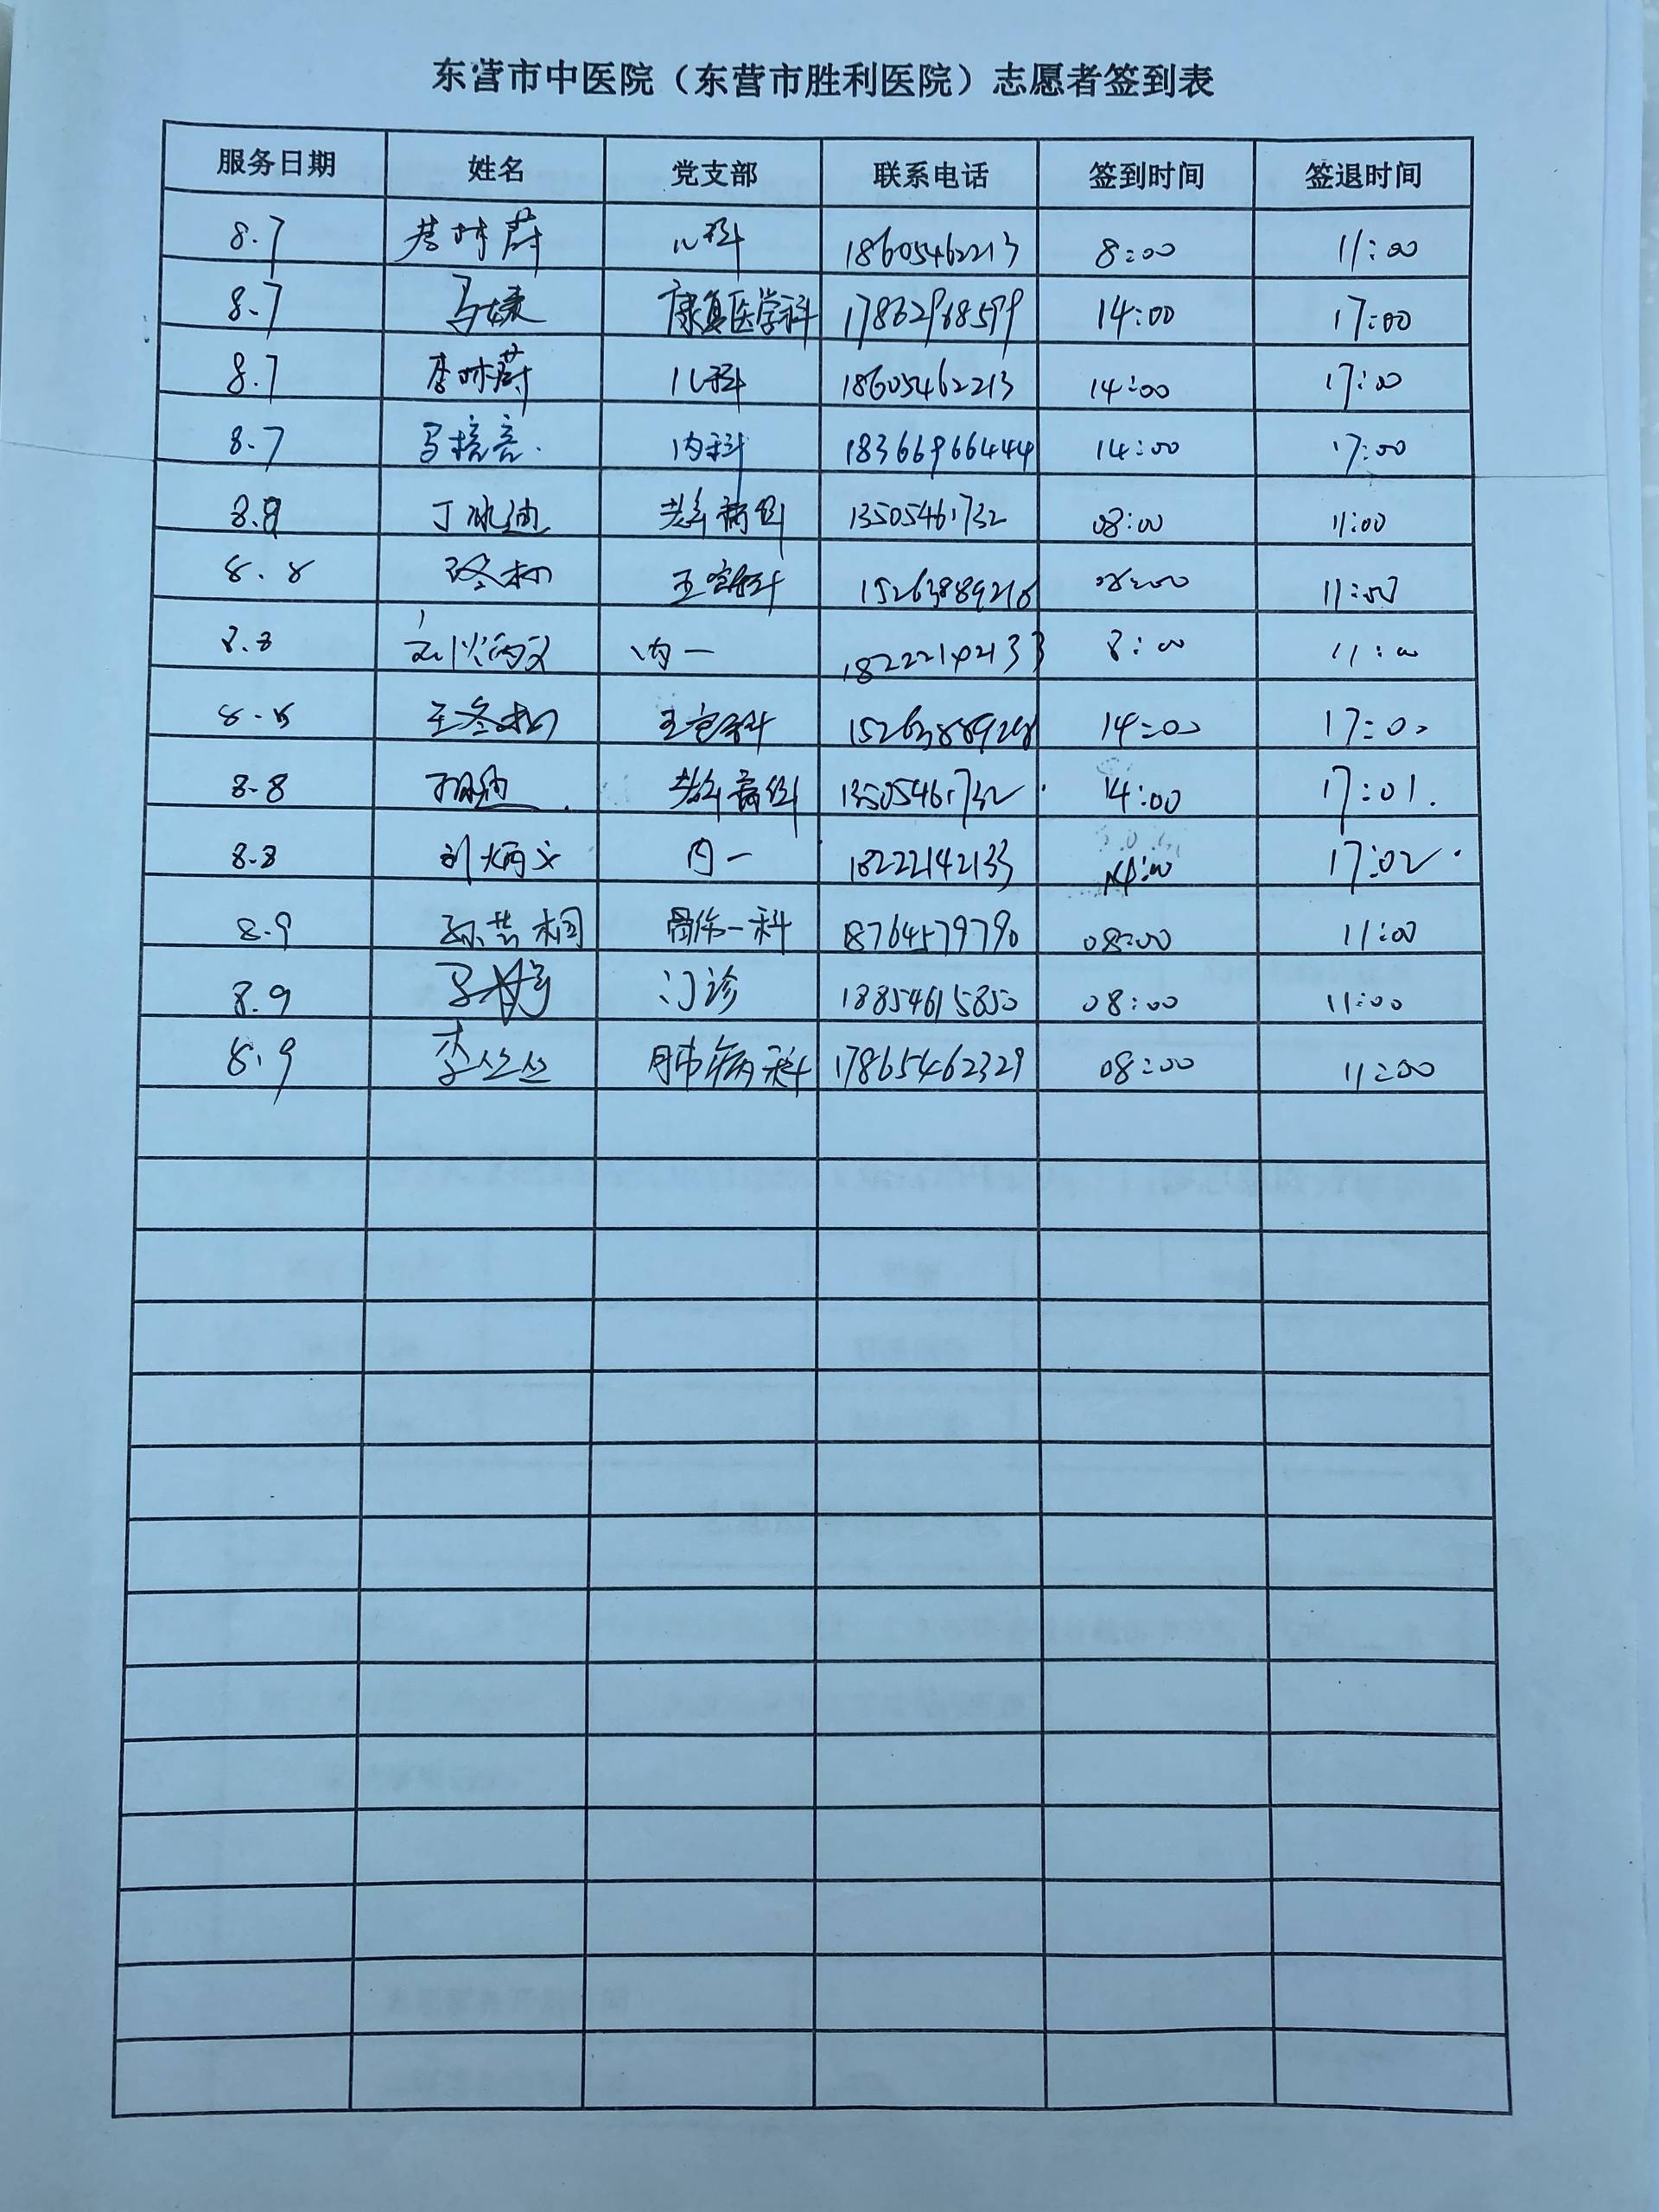 东营市中医院（东营市胜利医院）志愿者签到表
服务日期 姓名 党支部 联系电话 签到时间 签退时间
8.7 李林蔚 儿科 18605462213 8:00 11:00
8.7 马媛 康复医学科 17862968599 14:00 17:00
8.7 李林蔚 儿科 18605462213 14:00 17:00
8.7 马 内科 18366966444 14:00 17:00
8.8 丁冰迪 老年病科 13505461732 08:00 11:00
8.8 冬 五官科 15263889218 08:00 11:00
8.8 刘炳义 内一 18222142133 8:00 11:00
8.8 王冬 五官科 15263889218 14:00 17:00
8.8 丁冰迪 老年病科 13505461732 14:00 17:01.
8.8 刘炳义 内一 18222142133 14:00 17:02
8.9 孙芸桐 骨伤一科 18764579790 08:00 11:00
8.9 马 门诊 18854615850 08:00 11:00
8.9 李丝丝 肺病科 17865462329 08:00 11:00